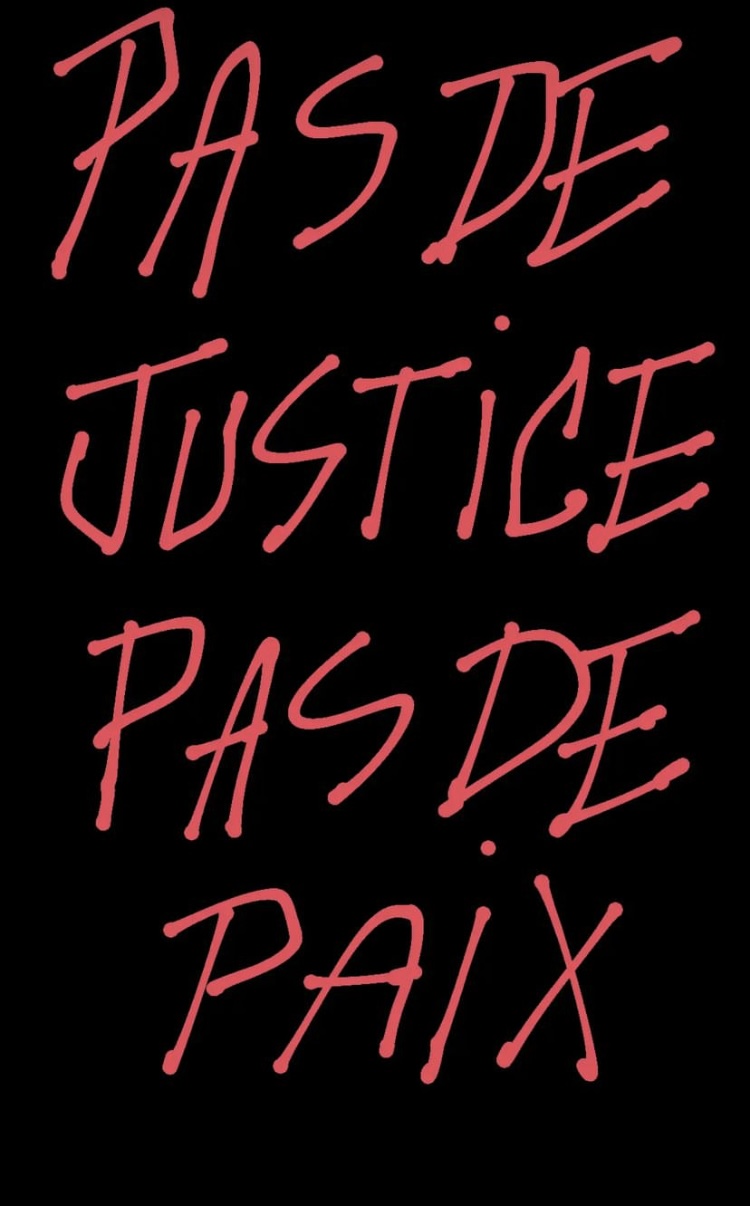 PAS DE
JUSTiCE
PAS DE
PAiX